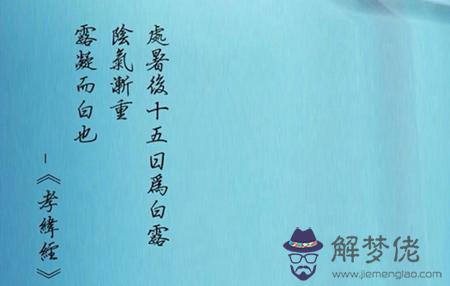 處暑後十五日為白露
陰氣漸重
露凝而白也
–《孝緯經》
解梦佬
www.jiemenglao.com